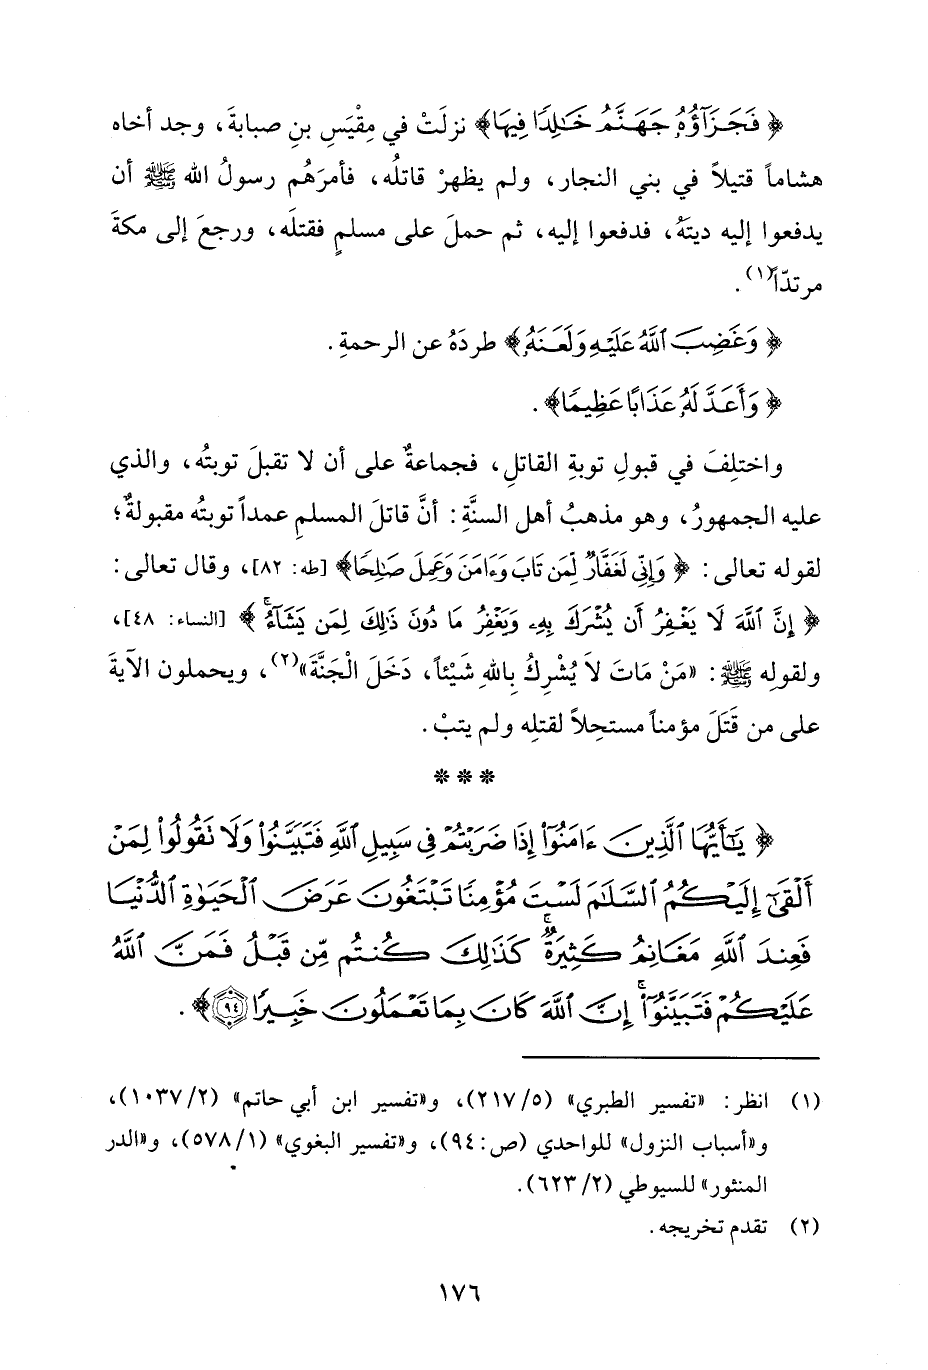 ﴿فَجَزَآؤُهُۥ جَهَنَّمُ خَـٰلِدًا فِيهَا﴾ نزلَتْ في مِقْيَسِ بنِ صبابةَ، وجد أخاه
هشاماً قتيلاً في بني النجار، ولم يظهرْ قاتلُه، فأمرَهُم رسولُ الله ﷺ أن
يدفعوا إليه ديتَهُ، فدفعوا إليه، ثم حملَ على مسلمٍ فقتلَه، ورجعَ إلى مكةَ
مرتدّاً(١).
﴿وَغَضِبَ ٱللَّهُ عَلَيْهِ وَلَعَنَهُۥ﴾ طردَهُ عن الرحمةِ.
﴿وَأَعَدَّ لَهُۥ عَذَابًا عَظِيمًا﴾.
واختلِفَ في قبولِ توبةِ القاتلِ، فجماعةٌ على أن لا تقبلَ توبتُه، والذي
عليه الجمهورُ، وهو مذهبُ أهل السنَّةِ: أنَّ قاتلَ المسلمِ عمداً توبتُه مقبولةٌ؛
لقوله تعالى: ﴿وَإِنِّي لَغَفَّارٌ لِّمَن تَابَ وَءَامَنَ وَعَمِلَ صَـٰلِحًا﴾ [طه: ٨٢]، وقال تعالى:
﴿إِنَّ ٱللَّهَ لَا يَغْفِرُ أَن يُشْرَكَ بِهِۦ وَيَغْفِرُ مَا دُونَ ذَٰلِكَ لِمَن يَشَآءُ﴾ [النساء: ٤٨]،
ولقوله ﷺ: «مَنْ مَاتَ لاَ يُشْرِكُ بِاللهِ شَيْئاً، دَخَلَ الْجَنَّةَ»(٢)، ويحملون الآيةَ
على من قَتَلَ مؤمناً مستحِلاً لقتلِه ولم يتبْ.
* * *
﴿يَـٰٓأَيُّهَا ٱلَّذِينَ ءَامَنُوٓا۟ إِذَا ضَرَبْتُمْ فِى سَبِيلِ ٱللَّهِ فَتَبَيَّنُوا۟ وَلَا تَقُولُوا۟ لِمَنْ
أَلْقَىٰٓ إِلَيْكُمُ ٱلسَّلَـٰمَ لَسْتَ مُؤْمِنًا تَبْتَغُونَ عَرَضَ ٱلْحَيَوٰةِ ٱلدُّنْيَا
فَعِندَ ٱللَّهِ مَغَانِمُ كَثِيرَةٌ ۚ كَذَٰلِكَ كُنتُم مِّن قَبْلُ فَمَنَّ ٱللَّهُ
عَلَيْكُمْ فَتَبَيَّنُوٓا۟ ۚ إِنَّ ٱللَّهَ كَانَ بِمَا تَعْمَلُونَ خَبِيرًا ۝٩٤﴾.
(١) انظر: «تفسير الطبري» (٥/ ٢١٧)، و«تفسير ابن أبي حاتم» (٢/ ١٠٣٧)،
و«أسباب النزول» للواحدي (ص: ٩٤)، و«تفسير البغوي» (١/ ٥٧٨)، و«الدر
المنثور» للسيوطي (٢/ ٦٢٣).
(٢) تقدم تخريجه.
١٧٦